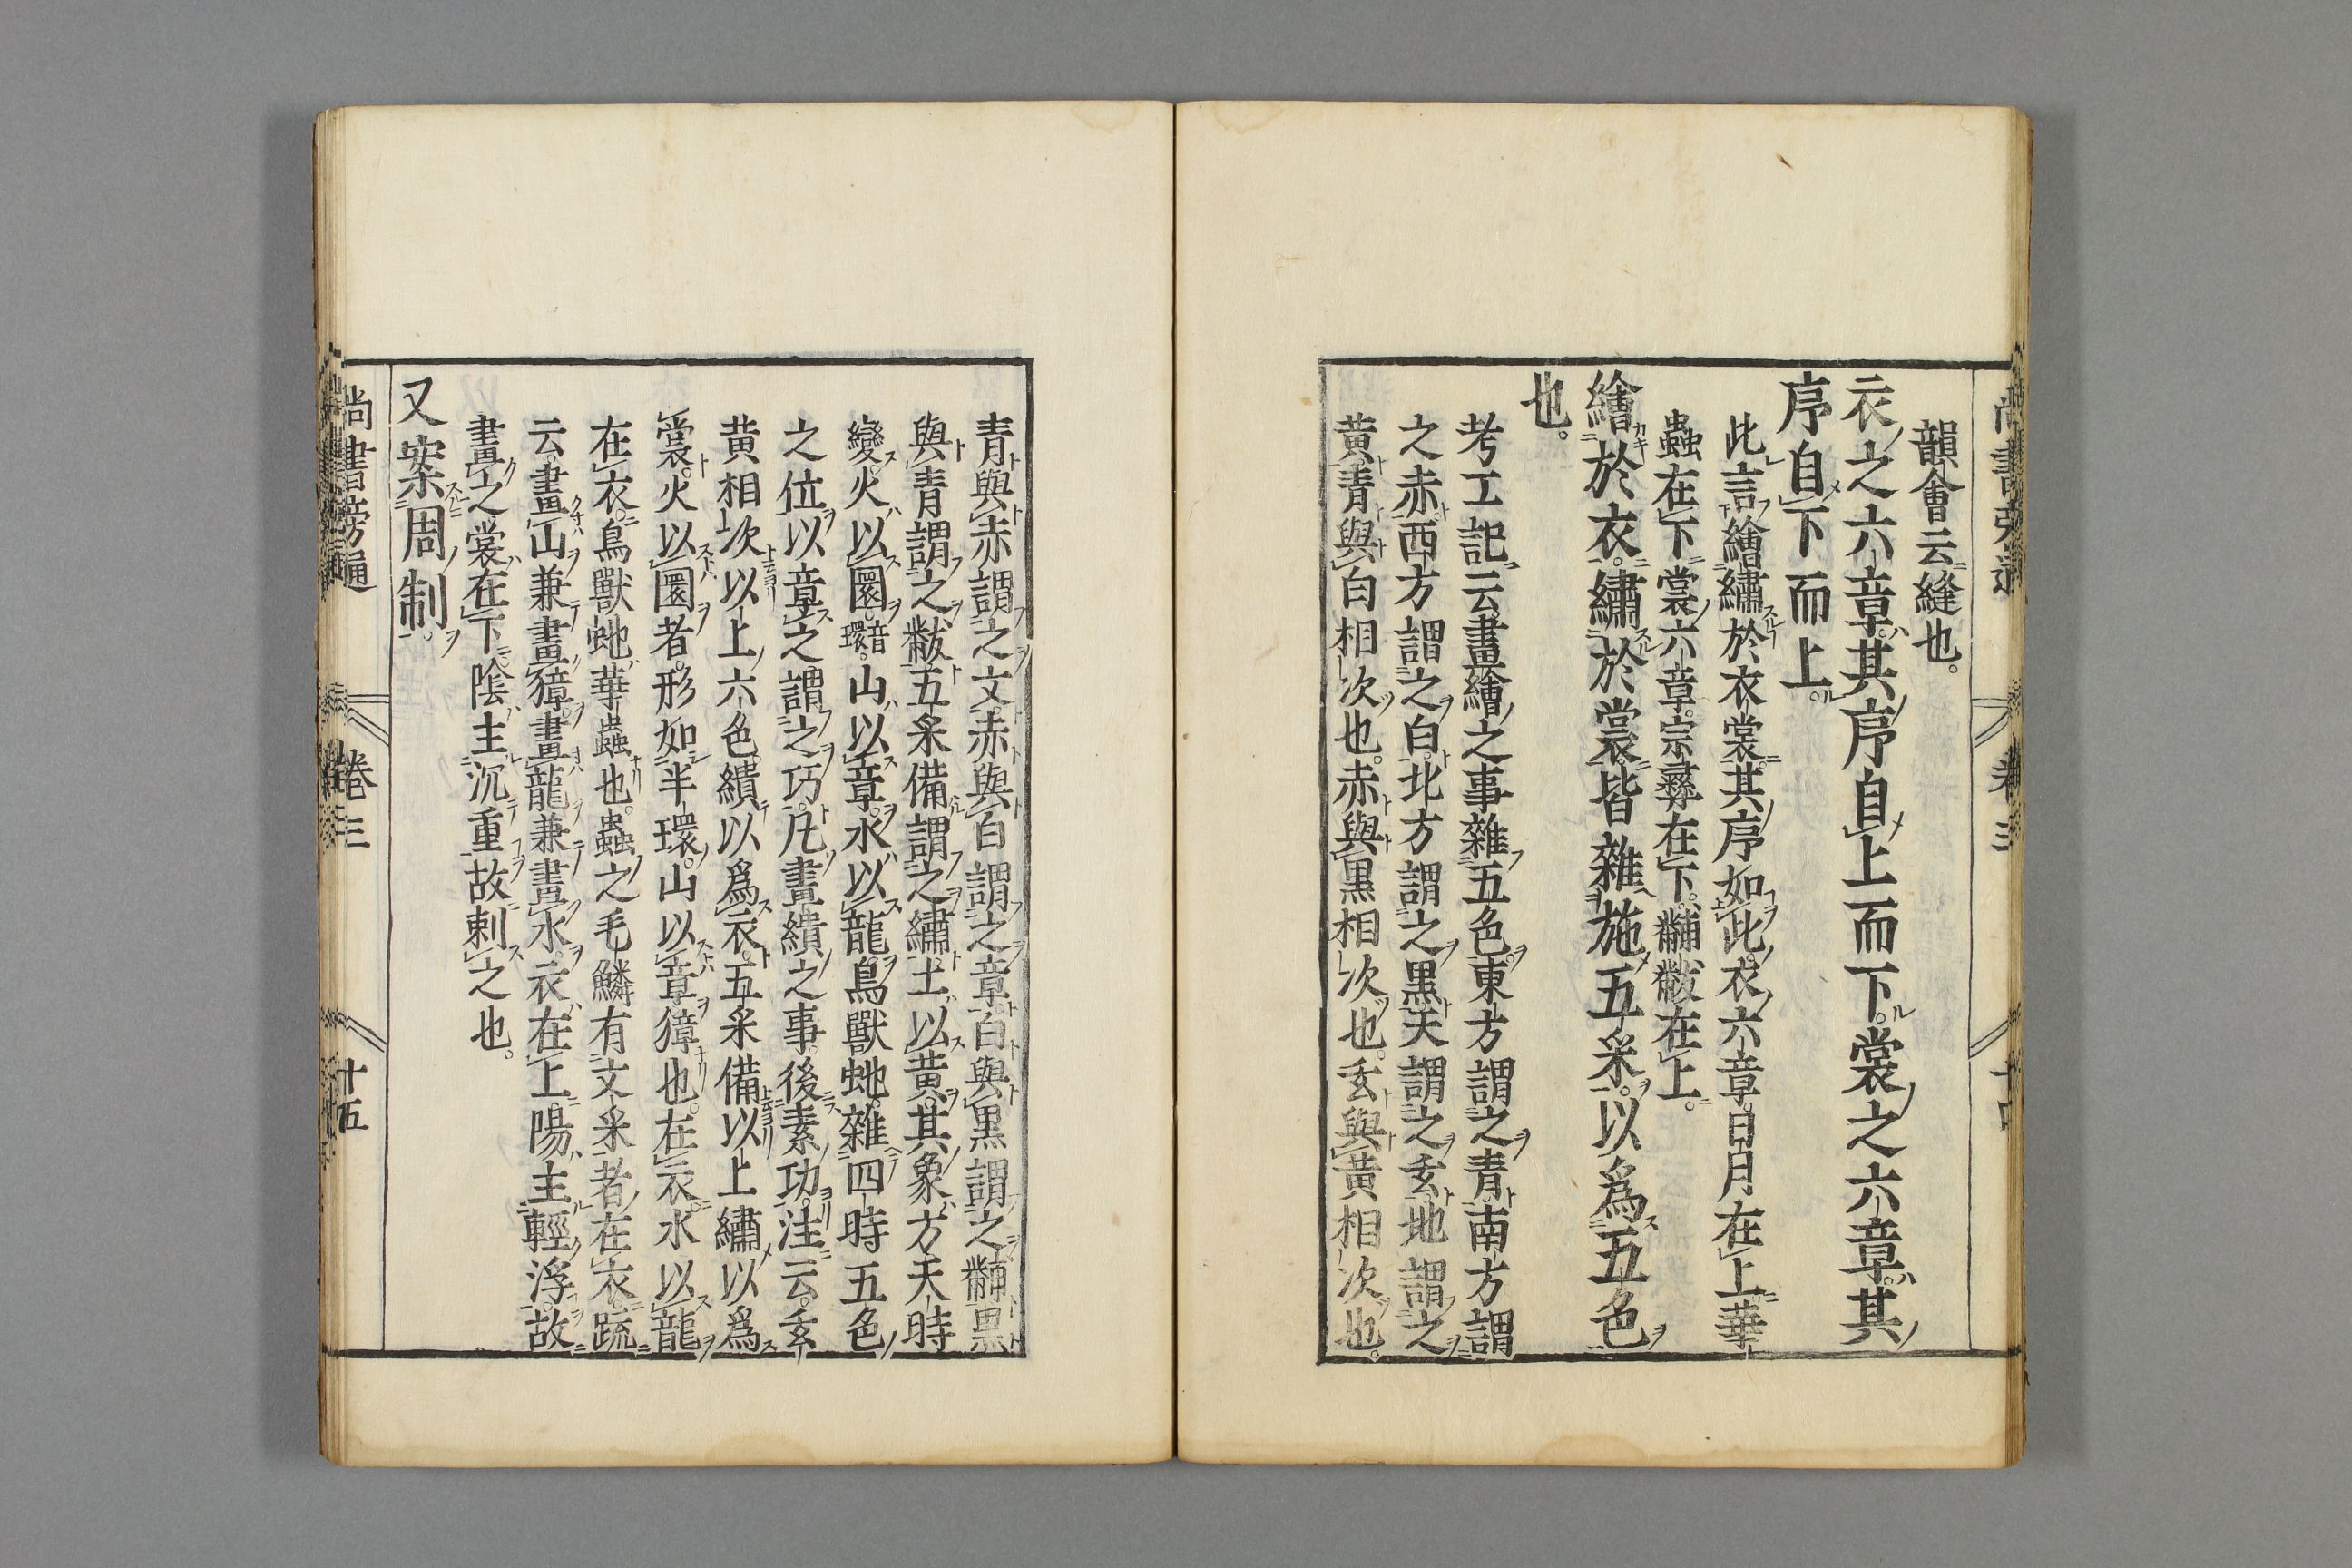 韻會云縫也。
衣之六章。其序自上而下。裳之六章。其
序自下而上。
此言繪繡於衣裳。其序如此。衣六章。日月在上。華
蟲在下。裳六章。宗彝在下。黼黻在上。
繪於衣。繡於裳。皆雜施五采。以爲五色
也。
考工記云。畫繪之事雜五色。東方謂之青。南方謂
之赤。西方謂之白。北方謂之黒。天謂之玄。地謂之
黄。青與白相次也。赤與黒相次也。玄與黄相次也。
青與赤謂之文。赤與白謂之章。白與黒謂之黼。黒
與青謂之黻。五采備謂之繡。土以黄。其象方。天時
變。火以圜。音環。山以章。水以龍。鳥獸虵。雜四時五色
之位以章之。謂之巧。凡畫繢之事。後素功。注云。玄
黄相次以上六色。繢以爲衣。五采備以上繡以爲
裳。火以圜者。形如半環。山以章。獐也。在衣。水以龍
在衣。鳥獸虵。華蟲也。蟲之毛鱗有文采者在衣。䟽
云。畫山兼畫獐。畫龍兼畫水。衣在上。陽主輕浮。故
畫之。裳在下。陰主沉重。故刺之也。
又案周制。
尚書旁通 卷三 十五